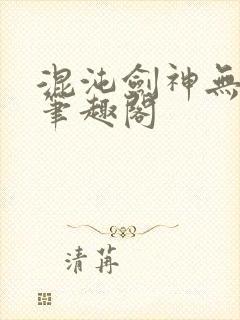 混沌劍神無
筆趣閣
清苒